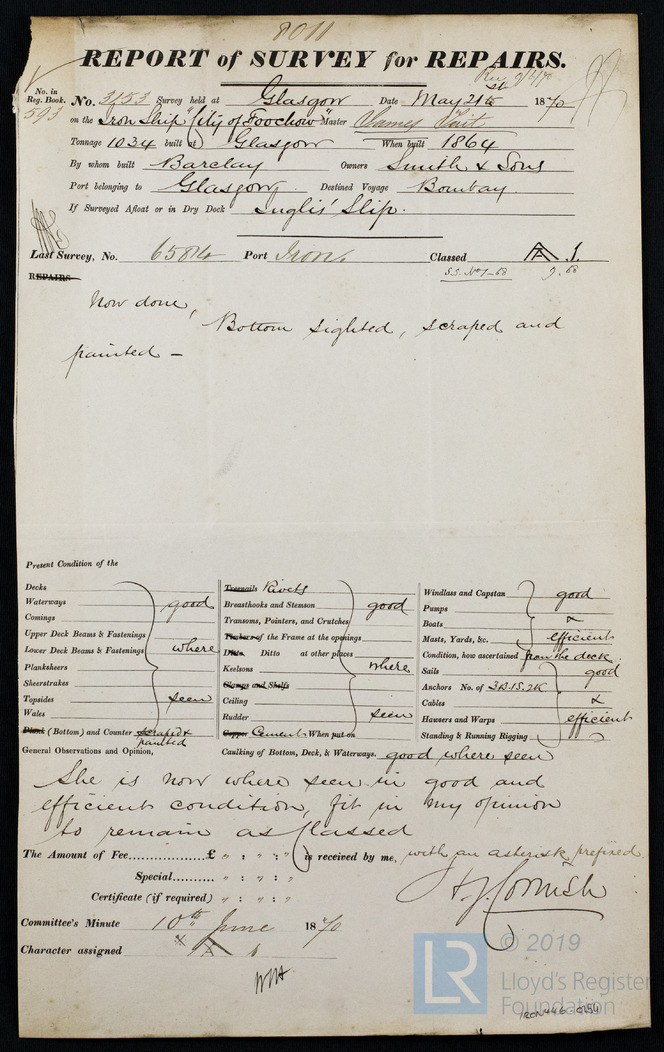 8011
REPORT of SURVEY for REPAIRS.
Rec 9/6/70
No. in Reg. Book. 593 No. 3153 Survey held at Glasgow Date May 21st 1870
on the Iron Ship "City of Foochow" Master James Tait
Tonnage 1034 built at Glasgow When built 1864
By whom built Barclay Owners Smith & Sons
Port belonging to Glasgow Destined Voyage Bombay
If Surveyed Afloat or in Dry Dock Inglis' Slip.
Last Survey, No. 6584 Port Iron. Classed A 1.
S.S. No 1-68 9.68
REPAIRS
Now done,
Bottom sighted, scraped and
painted —
Present Condition of the
Decks
Waterways good
Comings
Upper Deck Beams & Fastenings
Lower Deck Beams & Fastenings where
Planksheers
Sheerstrakes
Topsides seen
Wales
Plank (Bottom) and Counter scraped & painted
Treenails Rivets
Breasthooks and Stemson good
Transoms, Pointers, and Crutches
Timbers of the Frame at the openings
Ditto. Ditto at other places
Keelsons where
Clamps and Shelfs
Ceiling
Rudder seen
Copper Cement When put on
Windlass and Capstan good
Pumps
Boats &
Masts, Yards, &c. efficient
Condition, how ascertained from the deck
Sails good
Anchors No. of 3B.1S.2K
Cables &
Hawsers and Warps efficient
Standing & Running Rigging
General Observations and Opinion, Caulking of Bottom, Deck, & Waterways. good where seen
She is now where seen in good and
efficient condition, fit in my opinion
to remain as Classed
The Amount of Fee £ " : " : " is received by me, with an asterisk prefixed
Special " : " : "
H J Cornish
Certificate (if required) " : " : "
Committee's Minute 10th June 1870
Character assigned * A 1
© 2019
LR Lloyd's Register
Foundation
IRON446-0254